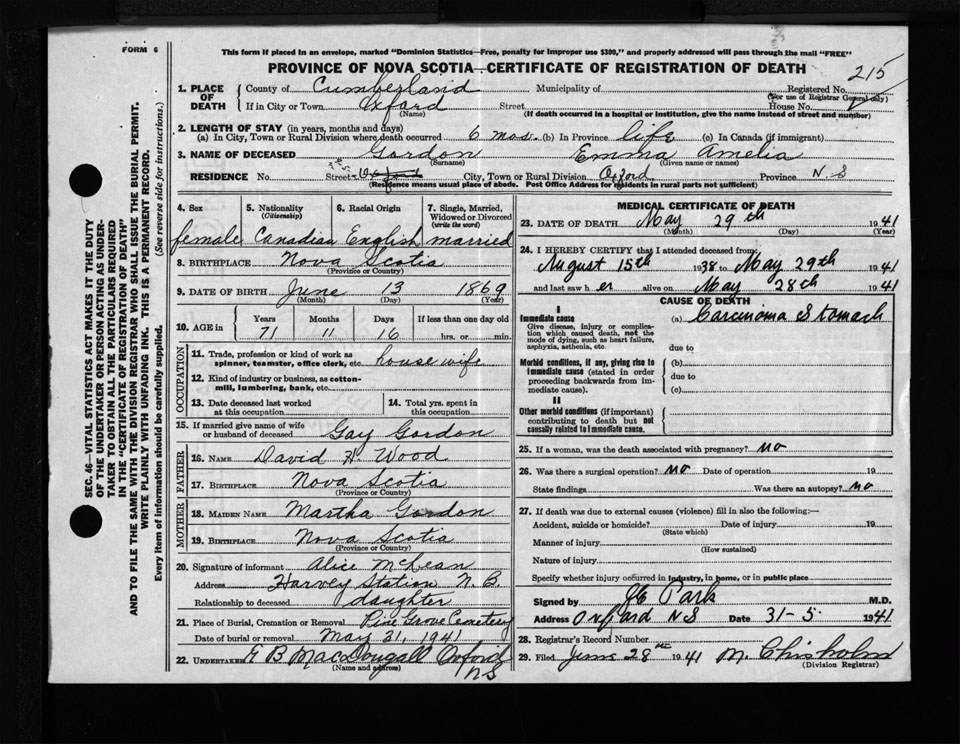 FORM 6
This form if placed in an envelope, marked "Dominion Statistics—Free, penalty for improper use $300," and properly addressed will pass through the mail "FREE"
PROVINCE OF NOVA SCOTIA—CERTIFICATE OF REGISTRATION OF DEATH
215
1. PLACE OF DEATH
County of Cumberland Municipality of Registered No.
(For use of Registrar General only)
If in City or Town Oxford Street House No.
(Name) (If death occurred in a hospital or institution, give the name instead of street and number)
2. LENGTH OF STAY (in years, months and days)
(a) In City, Town or Rural Division where death occurred 6 mos. (b) In Province life (c) In Canada (if immigrant)
3. NAME OF DECEASED Gordon Emma Amelia
(Surname) (Given name or names)
RESIDENCE No. Street Oxford City, Town or Rural Division Oxford Province N. S
(Residence means usual place of abode. Post Office Address for residents in rural parts not sufficient)
4. Sex female
5. Nationality (Citizenship) Canadian
6. Racial Origin English
7. Single, Married, Widowed or Divorced (write the word) married
8. BIRTHPLACE Nova Scotia
(Province or Country)
9. DATE OF BIRTH June 13 1869
(Month) (Day) (Year)
10. AGE in Years Months Days If less than one day old
71 11 16 hrs. or min.
OCCUPATION
11. Trade, profession or kind of work as spinner, teamster, office clerk, etc. house wife
12. Kind of industry or business, as cotton-mill, lumbering, bank, etc.
13. Date deceased last worked at this occupation
14. Total yrs. spent in this occupation
15. If married give name of wife or husband of deceased Gay Gordon
FATHER
16. NAME David H. Wood
17. BIRTHPLACE Nova Scotia
(Province or Country)
MOTHER
18. MAIDEN NAME Martha Gordon
19. BIRTHPLACE Nova Scotia
(Province or Country)
20. Signature of informant Alice McLean
Address Harvey Station N. B.
Relationship to deceased daughter
21. Place of Burial, Cremation or Removal Pine Grove Cemetery
Date of burial or removal May 31, 1941
22. UNDERTAKER E B MacDougall Oxford
(Name and address) NS
MEDICAL CERTIFICATE OF DEATH
23. DATE OF DEATH May 29th 1941
(Month) (Day) (Year)
24. I HEREBY CERTIFY that I attended deceased from
August 15th 1938 to May 29th 1941
and last saw her alive on May 28th 1941
CAUSE OF DEATH
I
Immediate cause (a) Carcinoma Stomach
Give disease, injury or complication which caused death, not the mode of dying, such as heart failure, asphyxia, asthenia, etc.
due to
Morbid conditions, if any, giving rise to immediate cause (stated in order proceeding backwards from immediate cause).
(b)
due to
(c)
II
Other morbid conditions (if important) contributing to death but not causally related to immediate cause.
25. If a woman, was the death associated with pregnancy? no
26. Was there a surgical operation? no Date of operation 19
State findings Was there an autopsy? no
27. If death was due to external causes (violence) fill in also the following:—
Accident, suicide or homicide? Date of injury 19
(State which)
Manner of injury
(How sustained)
Nature of injury
Specify whether injury occurred in industry, in home, or in public place
Signed by Park M.D.
Address Oxford N S Date 31-5- 1941
28. Registrar's Record Number
29. Filed June 28th 1941 M. Chisholm
(Division Registrar)
SEC. 46—VITAL STATISTICS ACT MAKES IT THE DUTY
OF THE UNDERTAKER OR PERSON ACTING AS UNDER-
TAKER TO OBTAIN ALL THE PARTICULARS REQUIRED
IN THE "CERTIFICATE OF REGISTRATION OF DEATH"
AND TO FILE THE SAME WITH THE DIVISION REGISTRAR WHO SHALL ISSUE THE BURIAL PERMIT.
WRITE PLAINLY WITH UNFADING INK. THIS IS A PERMANENT RECORD.
Every item of information should be carefully supplied. (See reverse side for instructions.)